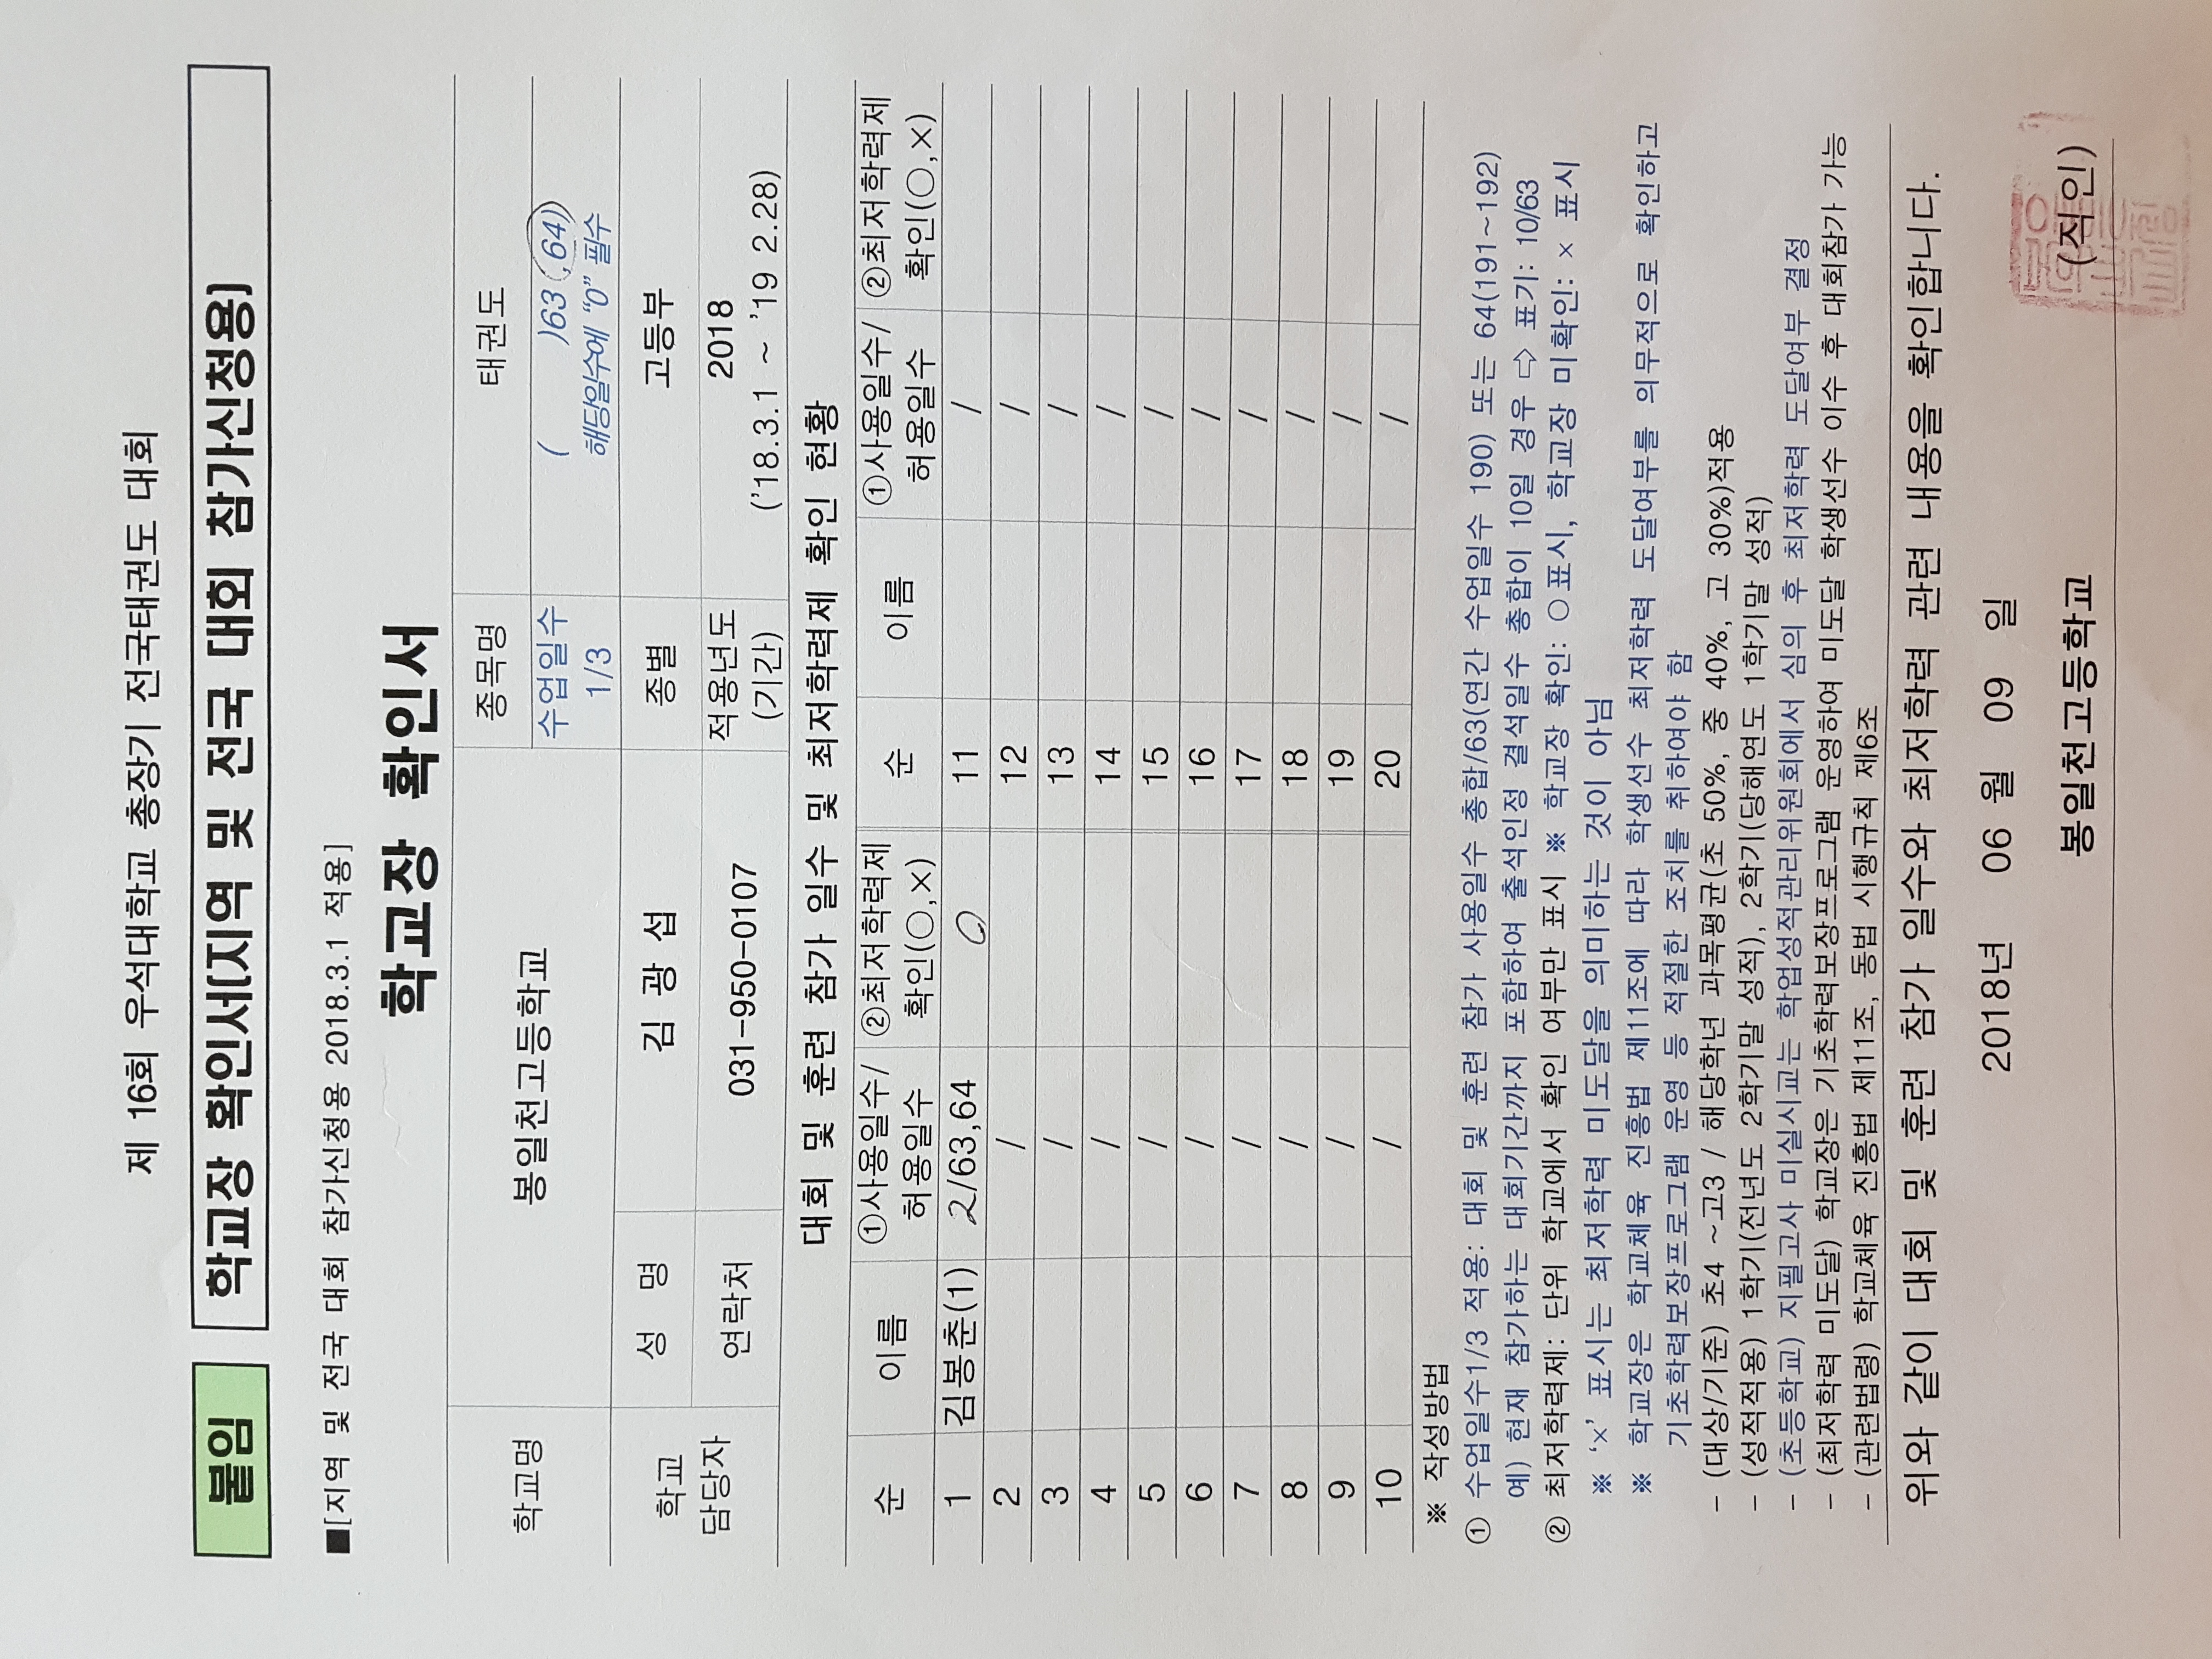 제 16회 우석대학교 총장기 전국태권도 대회
붙임 학교장 확인서(지역 및 전국 대회 참가신청용)
■[지역 및 전국 대회 참가신청용 2018.3.1 적용]
학교장 확인서
학교명 봉일천고등학교 종목명 태권도
수업일수 1/3 ( )63 (,64) 해당일수에 "0" 필수
학교 담당자 성 명 김 광 섭 종별 고등부
연락처 031-950-0107 적용년도 (기간) 2018 ('18.3.1 ~ '19 2.28)
대회 및 훈련 참가 일수 및 최저학력제 확인 현황
순 이름 ①사용일수/허용일수 ②최저학력제 확인(○,×) 순 이름 ①사용일수/허용일수 ②최저학력제 확인(○,×)
1 김봉춘(1) 2/63,64 O 11 /
2 / 12 /
3 / 13 /
4 / 14 /
5 / 15 /
6 / 16 /
7 / 17 /
8 / 18 /
9 / 19 /
10 / 20 /
※ 작성방법
① 수업일수1/3 적용: 대회 및 훈련 참가 사용일수 총합/63(연간 수업일수 190) 또는 64(191~192)
예) 현재 참가하는 대회기간까지 포함하여 출석인정 결석일수 총합이 10일 경우 ⇨ 표기: 10/63
② 최저학력제: 단위 학교에서 확인 여부만 표시 ※ 학교장 확인: ○표시, 학교장 미확인: × 표시
※ '×' 표시는 최저학력 미도달을 의미하는 것이 아님
※ 학교장은 학교체육 진흥법 제11조에 따라 학생선수 최저학력 도달여부를 의무적으로 확인하고
기초학력보장프로그램 운영 등 적절한 조치를 취하여야 함
- (대상/기준) 초4 ~고3 / 해당학년 과목평균(초 50%, 중 40%, 고 30%)적용
- (성적적용) 1학기(전년도 2학기말 성적), 2학기(당해연도 1학기말 성적)
- (초등학교) 지필고사 미실시교는 학업성적관리위원회에서 심의 후 최저학력 도달여부 결정
- (최저학력 미도달) 학교장은 기초학력보장프로그램 운영하여 미도달 학생선수 이수 후 대회참가 가능
- (관련법령) 학교체육 진흥법 제11조, 동법 시행규칙 제6조
위와 같이 대회 및 훈련 참가 일수와 최저학력 관련 내용을 확인합니다.
2018년 06 월 09 일
봉일천고등학교 (직인)